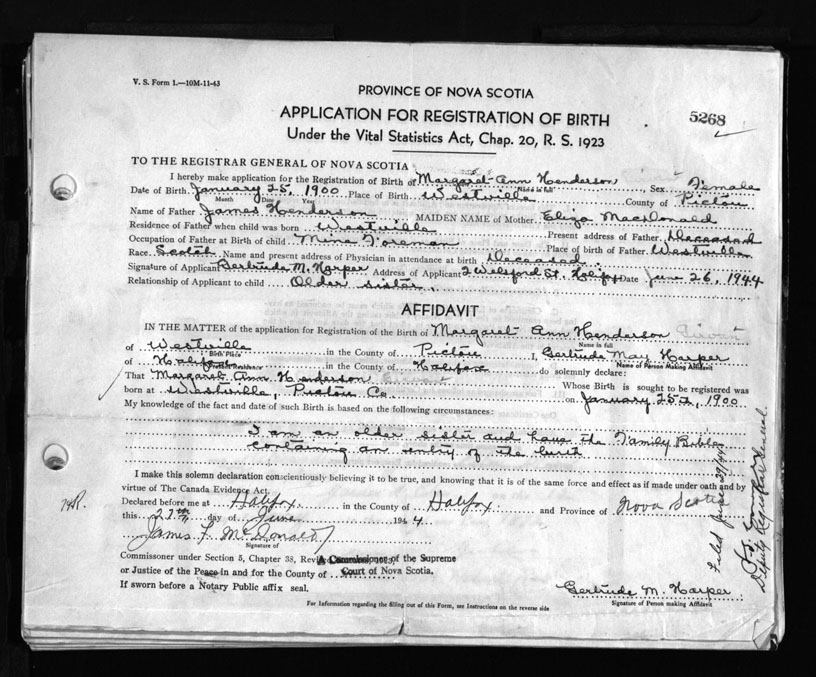 V. S. Form 1.—10M-11-43
PROVINCE OF NOVA SCOTIA
APPLICATION FOR REGISTRATION OF BIRTH
5268
Under the Vital Statistics Act, Chap. 20, R. S. 1923
TO THE REGISTRAR GENERAL OF NOVA SCOTIA
I hereby make application for the Registration of Birth of Margaret Ann Henderson Sex Female
Name in full
Date of Birth January 25, 1900 Place of Birth Westville County of Pictou
Month Date Year
Name of Father James Henderson MAIDEN NAME of Mother Eliza MacDonald
Residence of Father when child was born Westville Present address of Father Deceased
Occupation of Father at Birth of child Mine Foreman Place of birth of Father Westville
Race Scotch Name and present address of Physician in attendance at birth Deceased
Signature of Applicant Gertrude M. Harper Address of Applicant 2 Welsford St. Halifax Date June 26, 1944
Relationship of Applicant to child Older sister
AFFIDAVIT
IN THE MATTER of the application for Registration of the Birth of Margaret Ann Henderson
Name in full
of Westville in the County of Pictou I, Gertrude May Harper
Birth Place Name of Person Making Affidavit
of Halifax in the County of Halifax do solemnly declare:
Residence
That Margaret Ann Henderson Whose Birth is sought to be registered was
born at Westville, Pictou Co on January 25th, 1900
My knowledge of the fact and date of such Birth is based on the following circumstances:
I am an older sister and have the Family Bible
containing an entry of the birth
I make this solemn declaration conscientiously believing it to be true, and knowing that it is of the same force and effect as if made under oath and by
virtue of The Canada Evidence Act.
Declared before me at Halifax in the County of Halifax and Province of Nova Scotia
this 27th day of June 1944
James F. McDonald
Signature of
Commissioner under Section 5, Chapter 38, A Commissioner of the Supreme
or Justice of the Peace in and for the County of Court of Nova Scotia.
If sworn before a Notary Public affix seal.
Gertrude M. Harper
Signature of Person making Affidavit
For Information regarding the filling out of this Form, see Instructions on the reverse side
Filed June 29/44
Deputy Registrar General